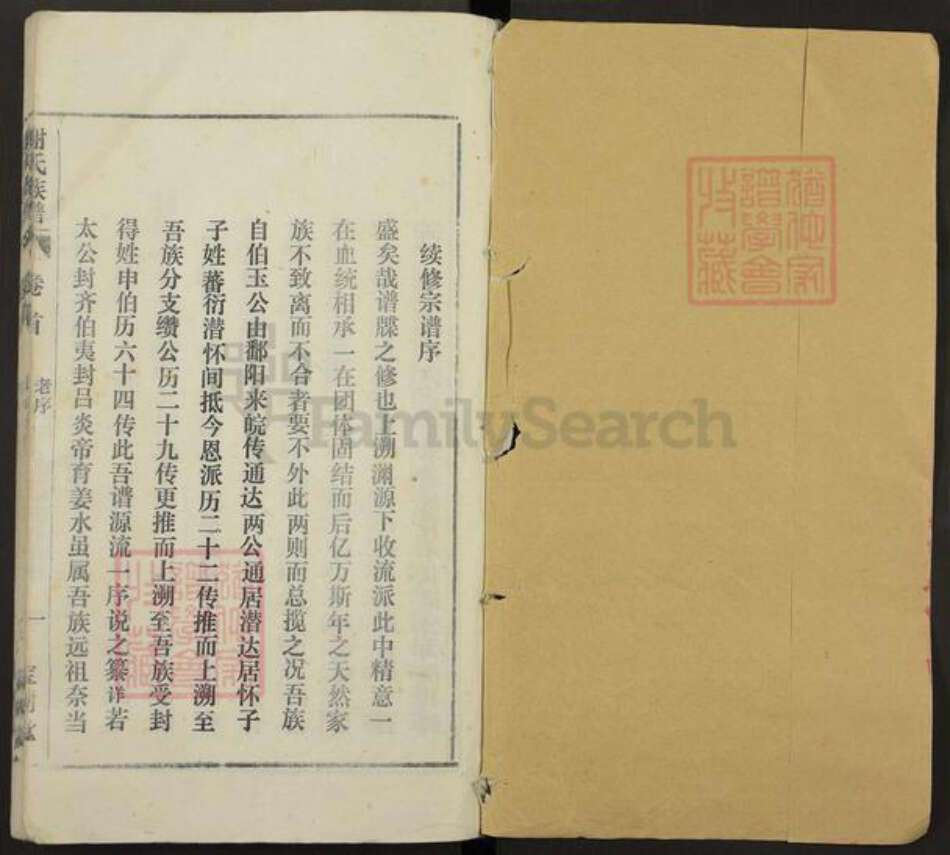 续修宗谱序
盛矣哉谱牒之修也上溯渊源下收流派此中精意一
在血统相承一在团体固结而后亿万斯年之天然家
族不致离而不合者要不外此两则而总揽之况吾族
自伯玉公由鄱阳来皖传通达两公通居潜达居怀子
子姓蕃衍潜怀间抵今恩派历二十二传推而上溯至
吾族分支缵公历二十九传更推而上溯至吾族受封
得姓申伯历六十四传此吾谱源流一序说之纂详若
太公封齐伯夷封吕炎帝育姜水虽属吾族远祖奈当
谢氏族谱
卷首
老序
一
宝树堂
FamilySearch
谱学会
收藏